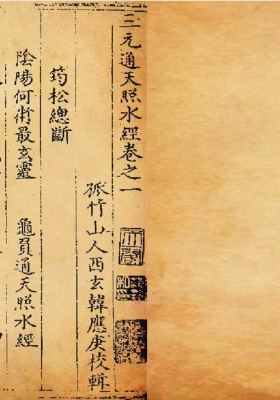 三元通天照水經卷之一
孤竹山人西玄韓應庚校輯
筠松總斷
陰陽何術最玄靈　龜負通天照水經